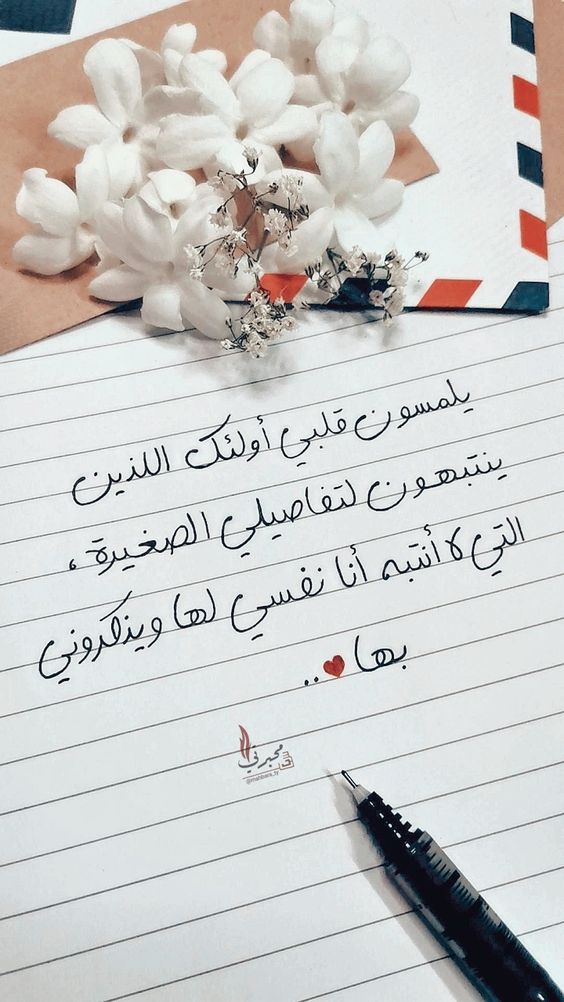 يلمسون قلبي أولئك اللذين
ينتبهون لتفاصيلي الصغيرة ،
التي لا أنتبه أنا نفسي لها ويذكروني
بها ♥..
محبرتي
@mahbara_ty